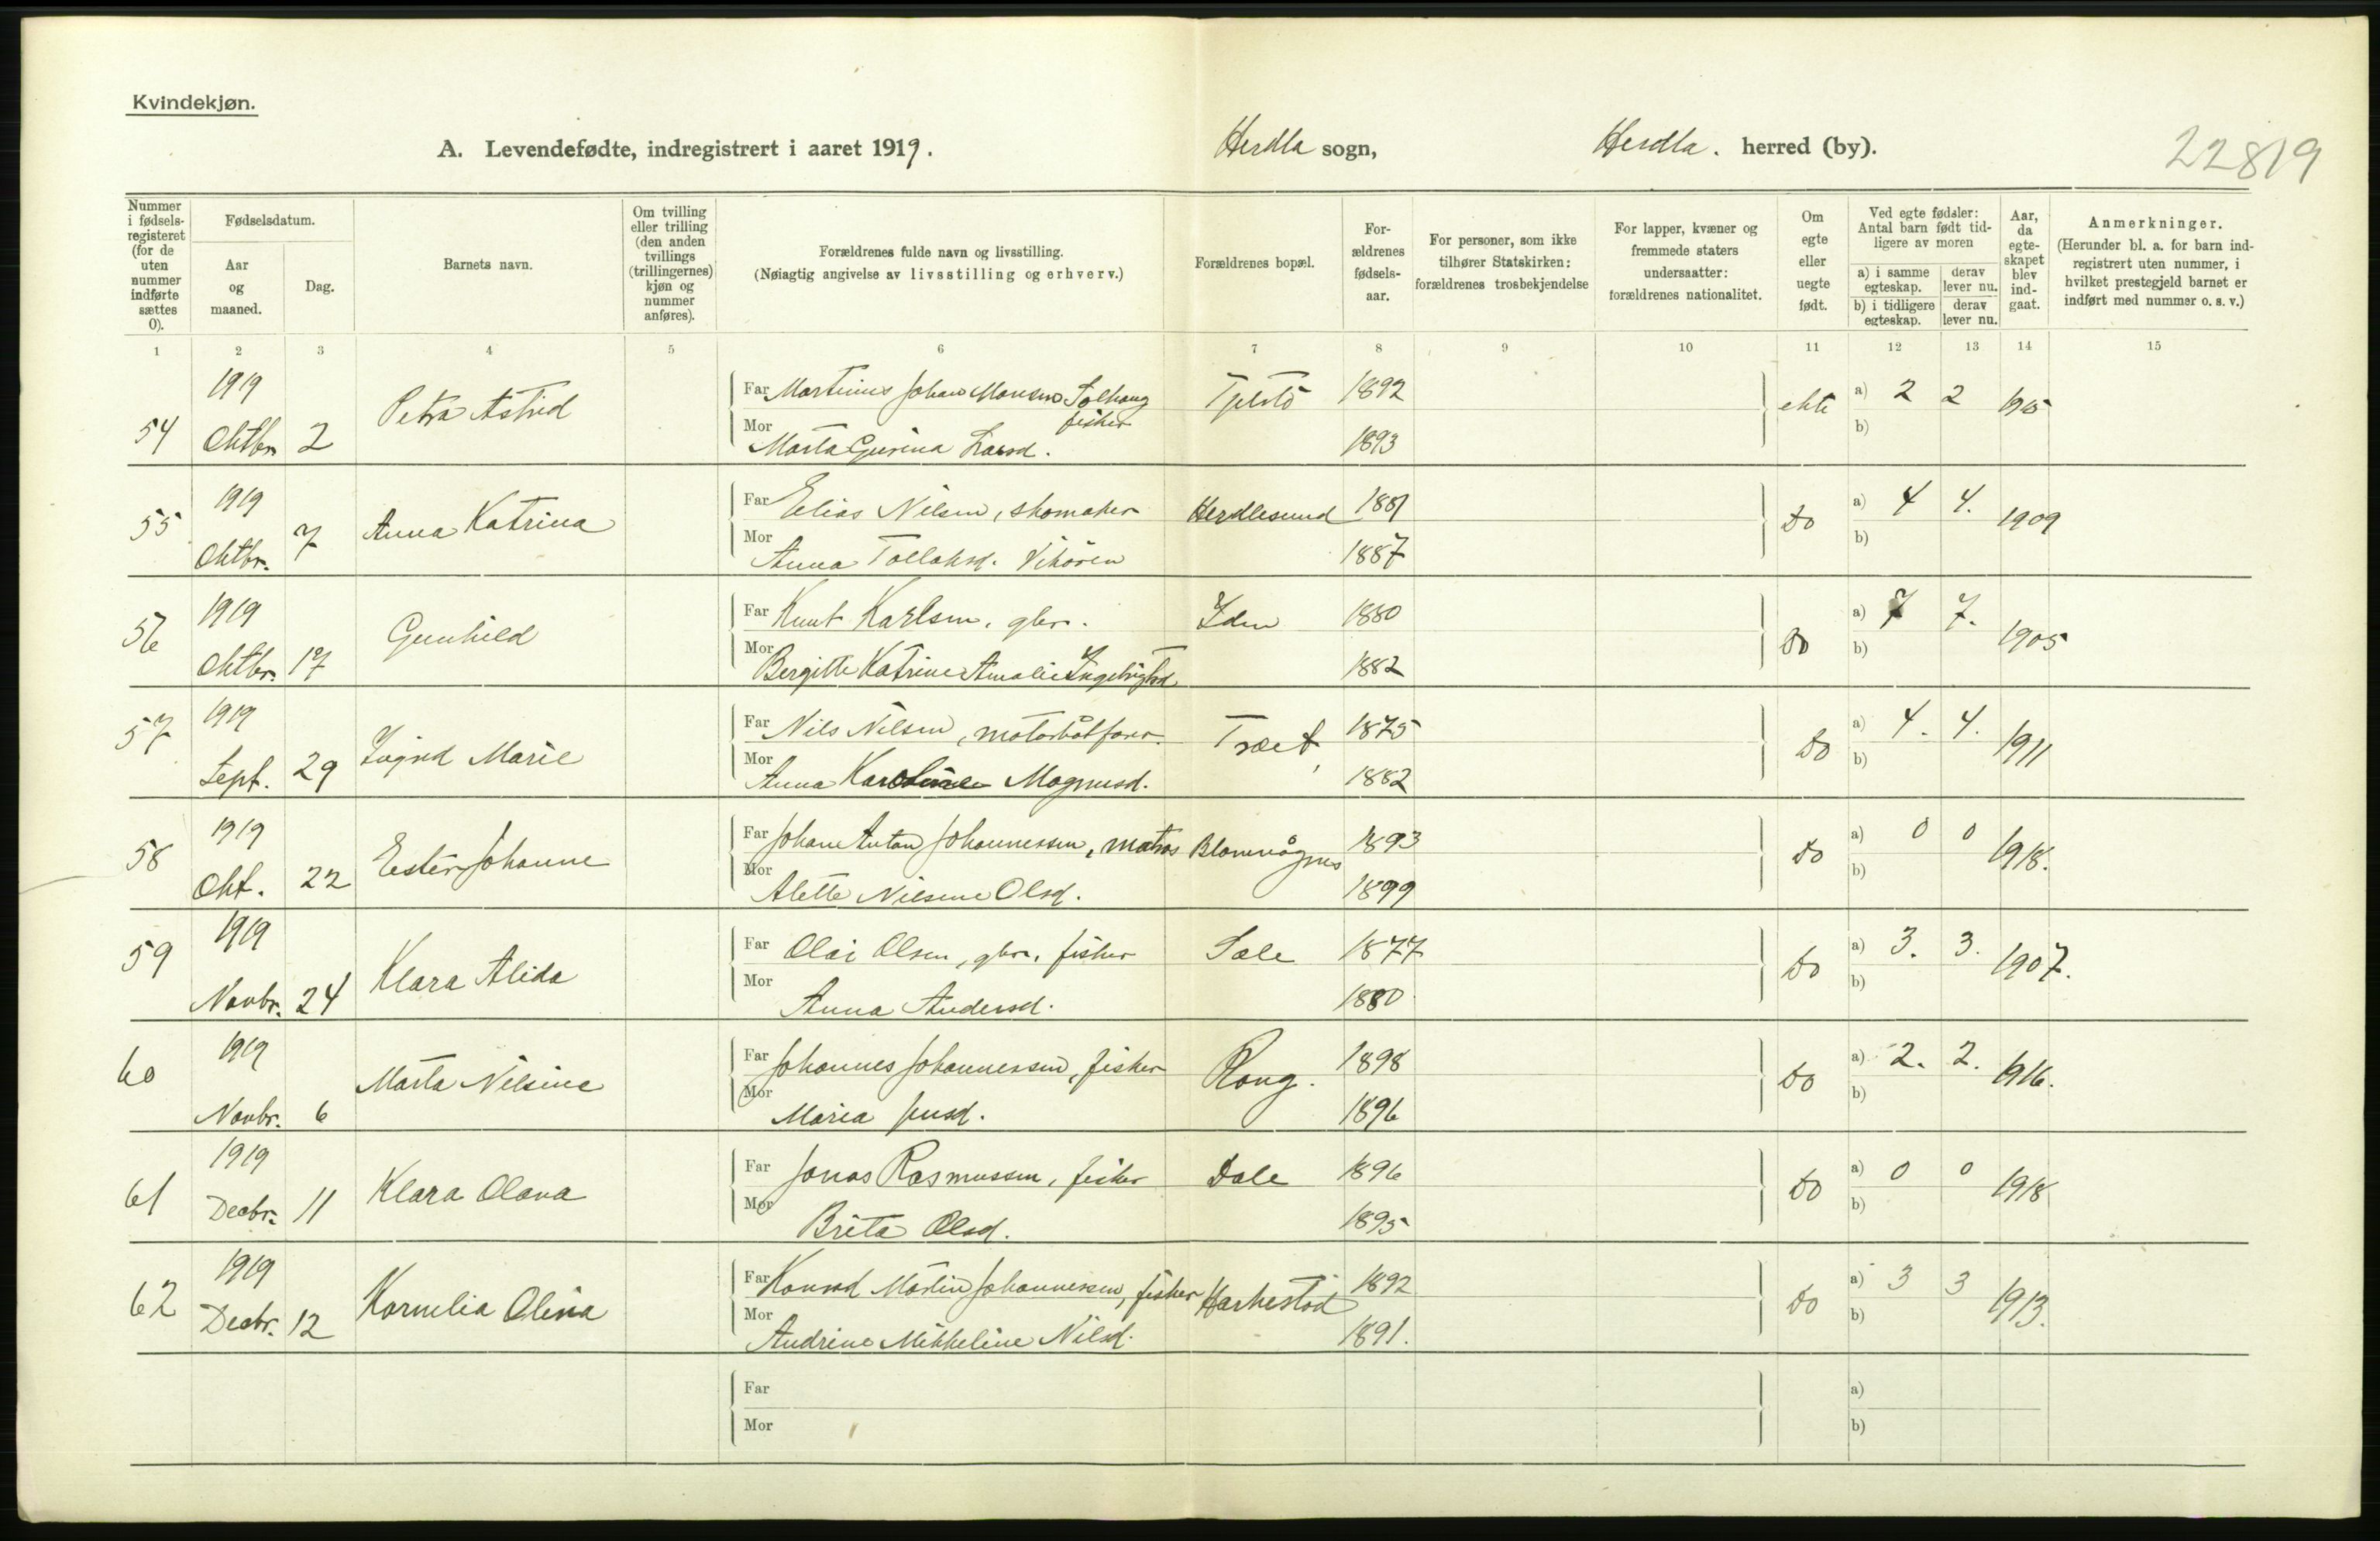 Kvindekjøn.
A. Levendefødte, indregistrert i aaret 1919. Herdla sogn, Herdla. herred (by). 22819
Nummer i fødsels-registeret (for de uten nummer indførte sættes 0).
Fødselsdatum.
Aar og maaned.
Dag.
Barnets navn.
Om tvilling eller trilling (den anden tvillings (trillingernes) kjøn og nummer anføres).
Forældrenes fulde navn og livsstilling.
(Nøiagtig angivelse av livsstilling og erhverv.)
Forældrenes bopæl.
For-ældrenes fødsels-aar.
For personer, som ikke tilhører Statskirken: forældrenes trosbekjendelse
For lapper, kvæner og fremmede staters undersaatter: forældrenes nationalitet.
Om egte eller uegte født.
Ved egte fødsler: Antal barn født tid-ligere av moren
a) i samme egteskap. derav lever nu.
b) i tidligere egteskap. derav lever nu.
Aar, da egte-skapet blev ind-gaat.
Anmerkninger.
(Herunder bl. a. for barn ind-registrert uten nummer, i hvilket prestegjeld barnet er indført med nummer o. s. v.)
1 2 3 4 5 6 7 8 9 10 11 12 13 14 15
54 1919 Oktbr. 2 Petra Astrid
Far Martinus Johan Monsen Solhaug fisker Tjelstö 1892
Mor Marta Gurina Larsd. 1893
ekte a) 2 2 1915
b)
55 1919 Oktbr. 7 Anna Katrina
Far Elias Nilsen, skomaker Herdlesund 1881
Mor Anna Tollaksd. Vikören 1887
Do a) 4 4. 1909
b)
56 1919 Oktbr. 17 Gunhild
Far Knut Karlsen, gbr. Iden 1880
Mor Bergitte Katrine Amalie Ingebrigtsd. 1882
Do a) 7 7. 1905
b)
57 1919 Sept. 29 Ingrid Marie
Far Nils Nilsen, motorbåtförer. Træet 1875
Mor Anna Karoline Magnusd. 1882
Do a) 4. 4. 1911
b)
58 1919 Okt. 22 Ester Johanne
Far Johan Anton Johannessen, matros Blomvågnes 1893
Mor Alette Nilsine Olsd. 1899
Do a) 0 0 1918.
b)
59 1919 Novbr. 24 Klara Alida
Far Olai Olsen, gbr. fisker Sæle 1877
Mor Anna Andersd. 1880
Do a) 3. 3. 1907.
b)
60 1919 Novbr. 6 Marta Nilsine
Far Johannes Johannessen, fisker Rong. 1898
Mor Maria Jensd. 1896
Do a) 2. 2. 1916.
b)
61 1919 Decbr. 11 Klara Olava
Far Jonas Rasmussen, fisker Dale 1896
Mor Brita Olsd. 1895
Do a) 0 0 1918
b)
62 1919 Decbr. 12 Kornelia Olina
Far Konrad Martin Johannessen, fisker Harkestad 1892
Mor Andrine Mikkeline Nilsd. 1891.
Do a) 3 3 1913.
b)
Far a)
Mor b)